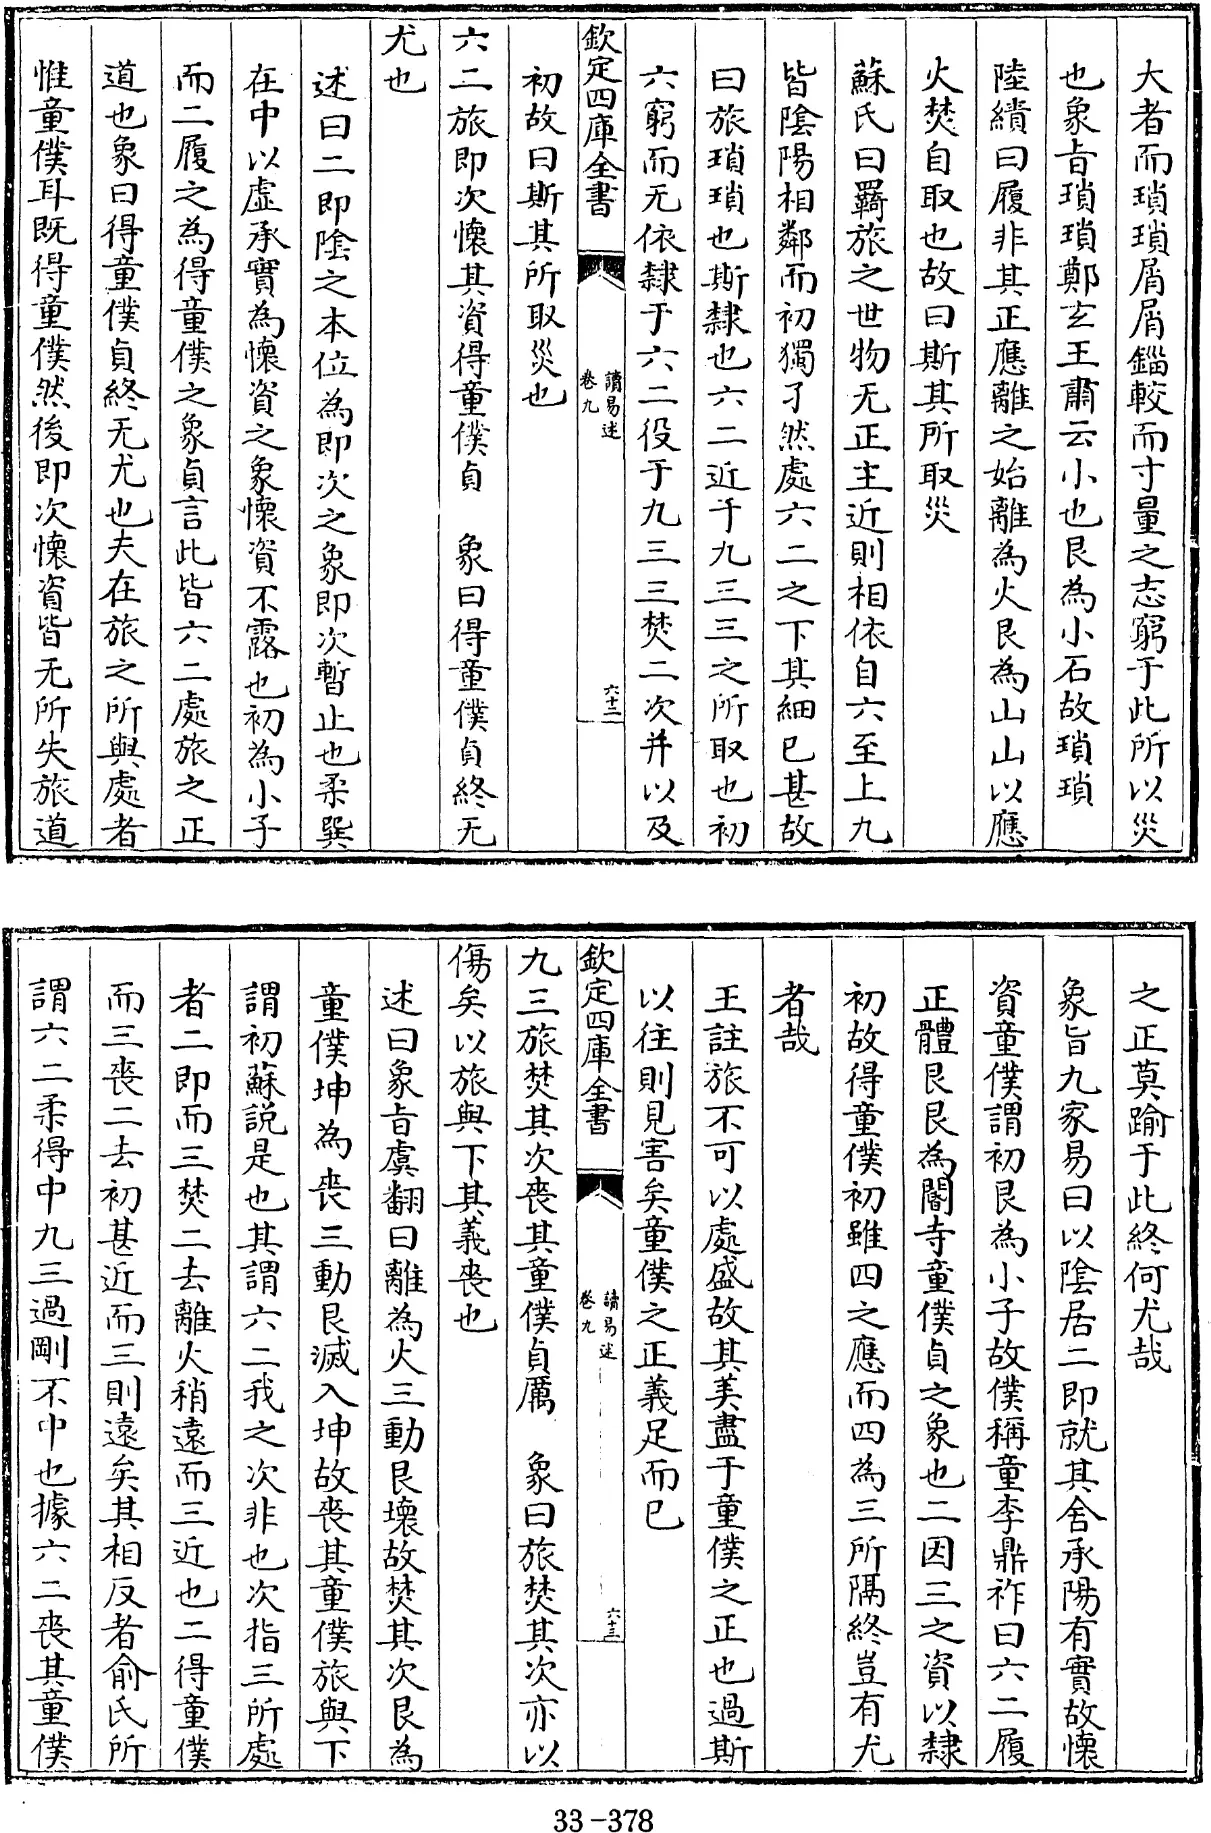 大者而瑣瑣屑屑錙較而寸量之志窮于此所以災
也象旨瑣瑣鄭玄王肅云小也艮為小石故瑣瑣
陸績曰履非其正應離之始離為火艮為山山以應
火焚自取也故曰斯其所取災
蘇氏曰羇旅之世物无正主近則相依自六至上九
皆陰陽相鄰而初獨孑然處六二之下其細已甚故
曰旅瑣瑣也斯隸也六二近于九三三之所取也初
六窮而无依隸于六二役于九三三焚二次并以及
欽定四庫全書
讀易述
卷九
六十二
初故曰斯其所取災也
六二旅即次懷其資得童僕貞　象曰得童僕貞終无
尤也
述曰二即陰之本位為即次之象即次暫止也柔巽
在中以虛承實為懷資之象懷資不露也初為小子
而二履之為得童僕之象貞言此皆六二處旅之正
道也象曰得童僕貞終无尤也夫在旅之所與處者
惟童僕耳既得童僕然後即次懷資皆无所失旅道
之正莫踰于此終何尤哉
象旨九家易曰以陰居二即就其舍承陽有實故懷
資童僕謂初艮為小子故僕稱童李鼎祚曰六二履
正體艮艮為閽寺童僕貞之象也二因三之資以隸
初故得童僕初雖四之應而四為三所隔終豈有尤
者哉
王註旅不可以處盛故其美盡于童僕之正也過斯
以往則見害矣童僕之正義足而已
欽定四庫全書
讀易述
卷九
六十三
九三旅焚其次喪其童僕貞厲　象曰旅焚其次亦以
傷矣以旅與下其義喪也
述曰象旨虞翻曰離為火三動艮壞故焚其次艮為
童僕坤為喪三動艮滅入坤故喪其童僕旅與下
謂初蘇説是也其謂六二我之次非也次指三所處
者二即而三焚二去離火稍遠而三近也二得童僕
而三喪二去初甚近而三則遠矣其相反者俞氏所
謂六二柔得中九三過剛不中也據六二喪其童僕
33-378